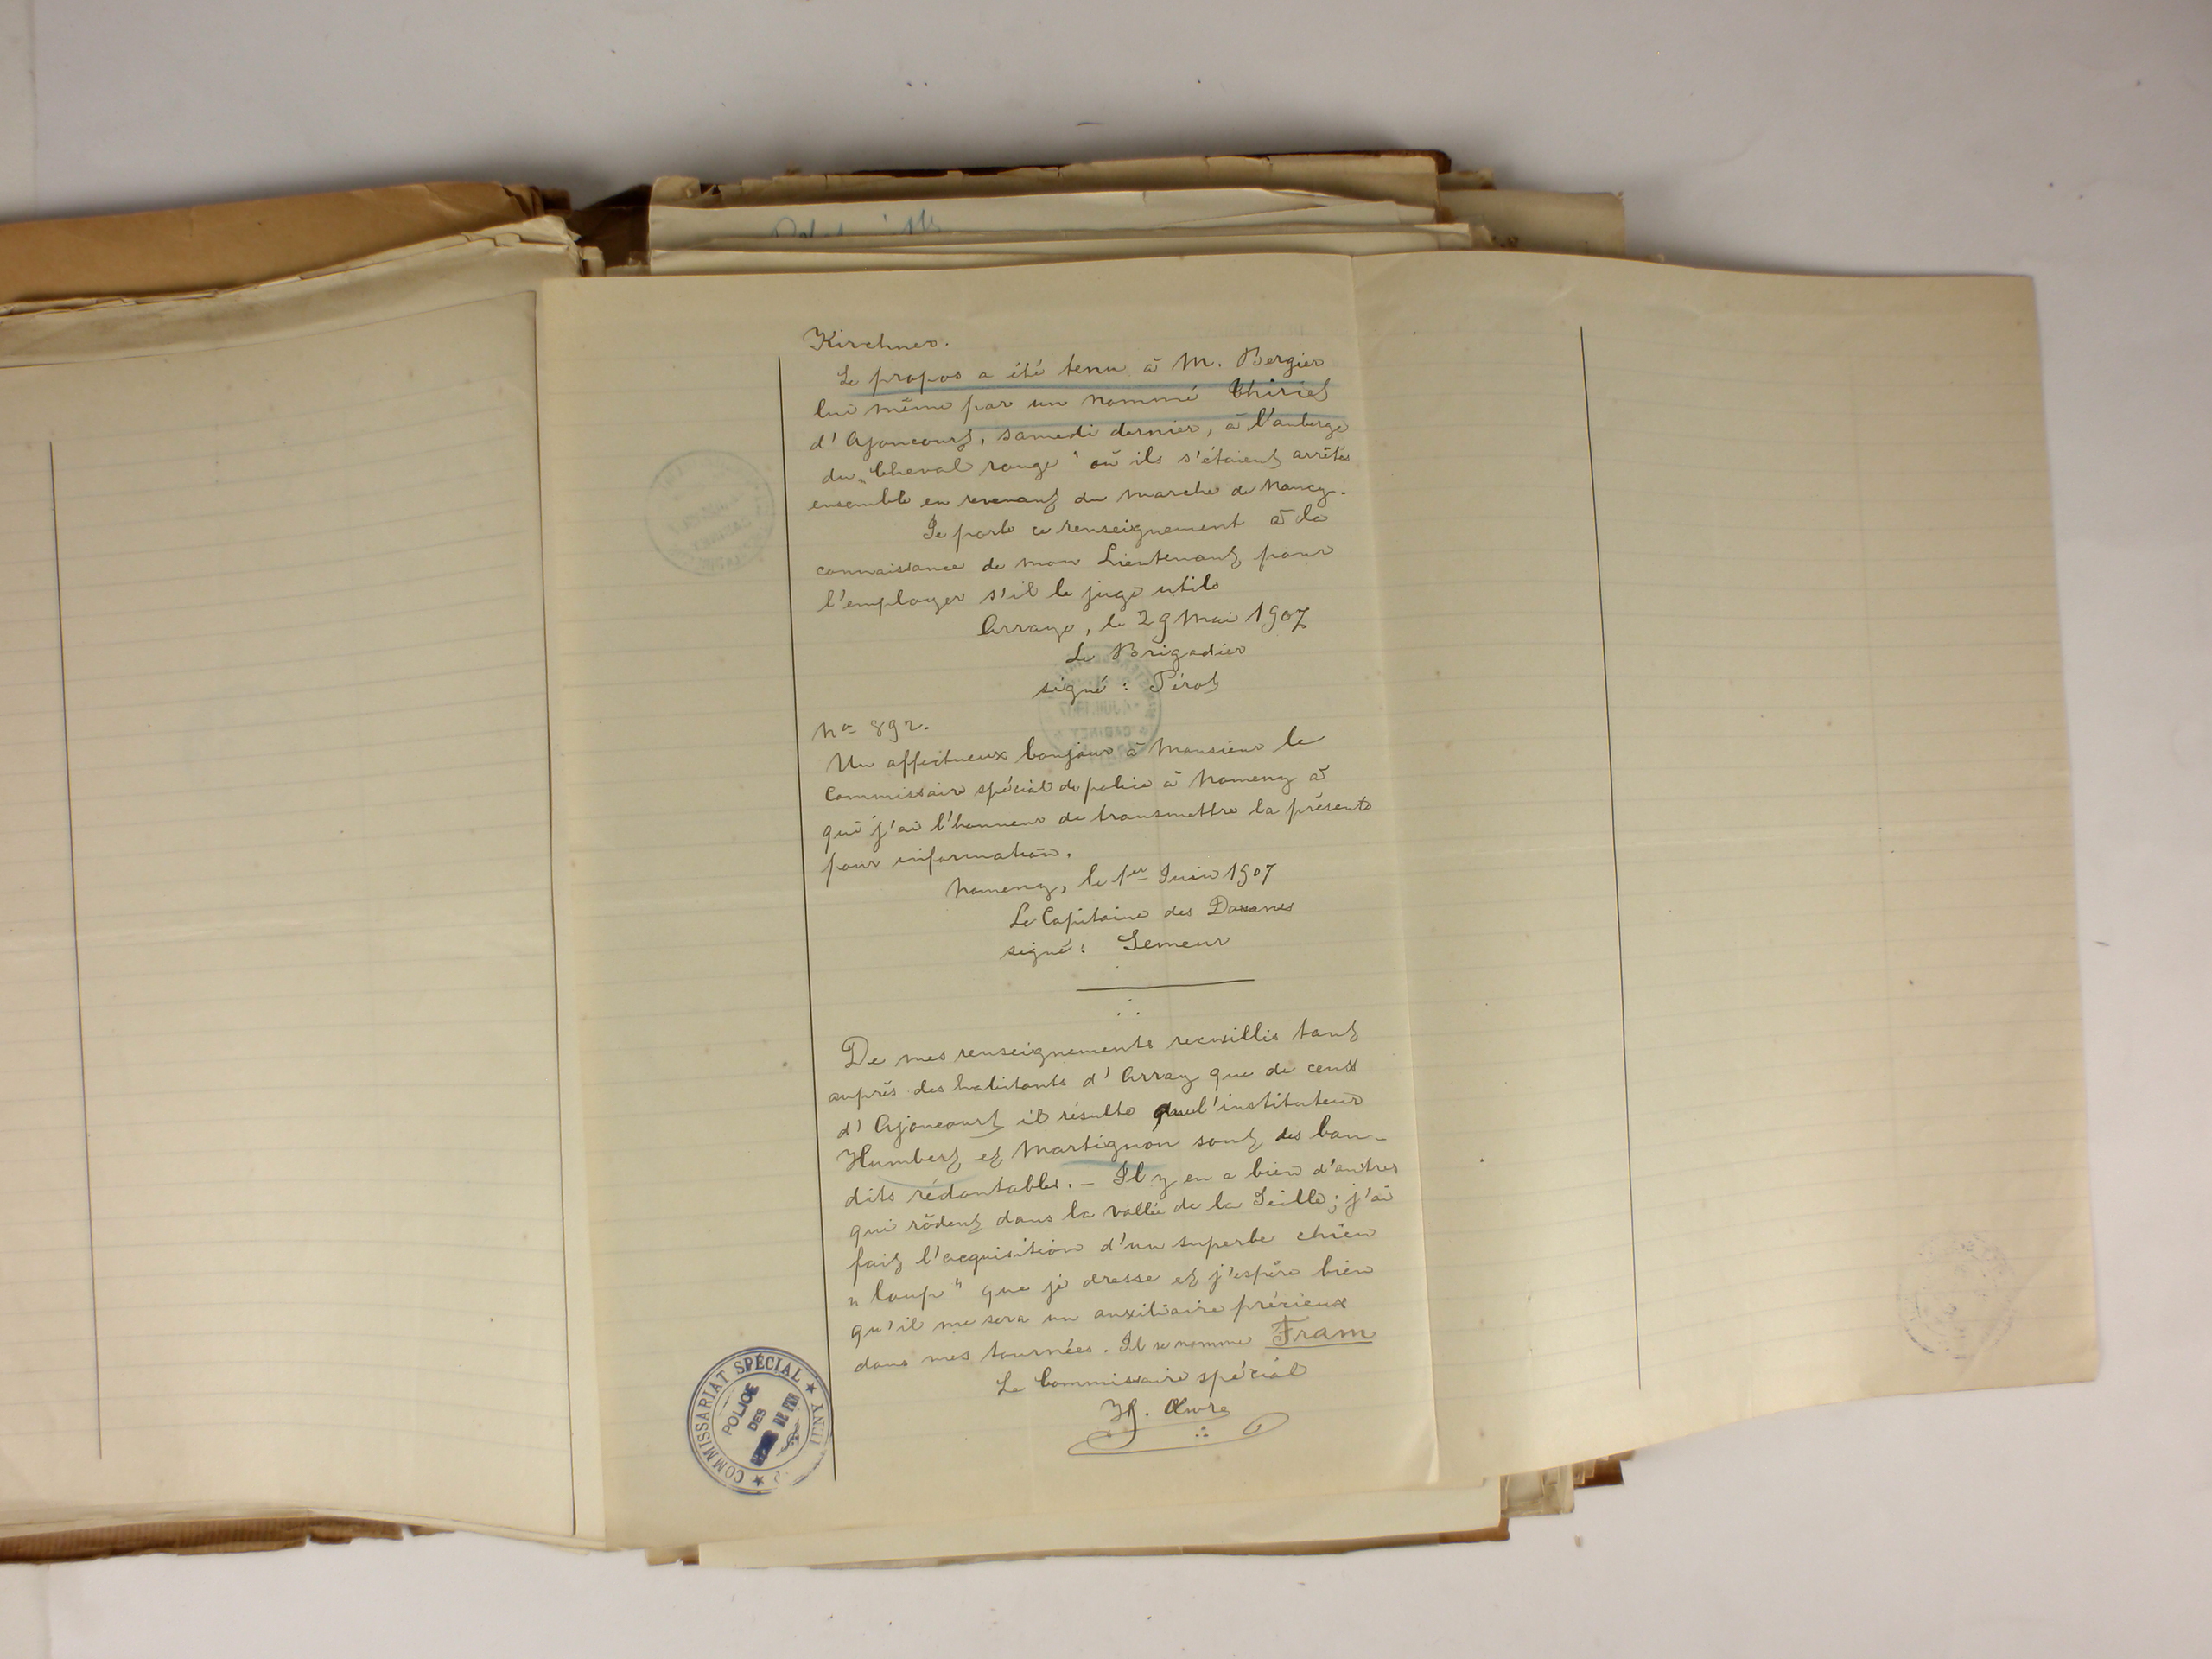 Kirchner.
Le propos a été tenu à M. Bergier
lui même par un nommé Thiriet
d'Ajoncourt, samedi dernier, à l'auberge
du "Cheval rouge" où ils s'étaient arrêtés
ensemble en revenant du marché de Nancy.
Je porte ce renseignement à la
connaissance de mon Lieutenant pour
l'employer s'il le juge utile
Arraye, le 29 Mai 1907
Le Brigadier
signé : Pérot
No 892.
Un affectueux bonjour à Monsieur le
Commissaire spécial de police à Nomeny à
qui j'ai l'honneur de transmettre la présente
pour information.
Nomeny, le 1er Juin 1907
Le Capitaine des Douanes
signé : Lemeur
De mes renseignements recueillis tant
auprès des habitants d'Array que de ceux
d'Ajoncourt il résulte que l'instituteur
Humbert et Martignon sont des ban-
dits rédoutables. — Il y en a bien d'autres
qui rôdent dans la vallée de la Seille ; j'ai
fait l'acquisition d'un superbe chien
"loup" que je dresse et j'espère bien
qu'il me sera un auxiliaire précieux
dans mes tournées. Il se nomme Fram
Le Commissaire spécial
COMMISSARIAT SPÉCIAL
POLICE
DES
DE FER